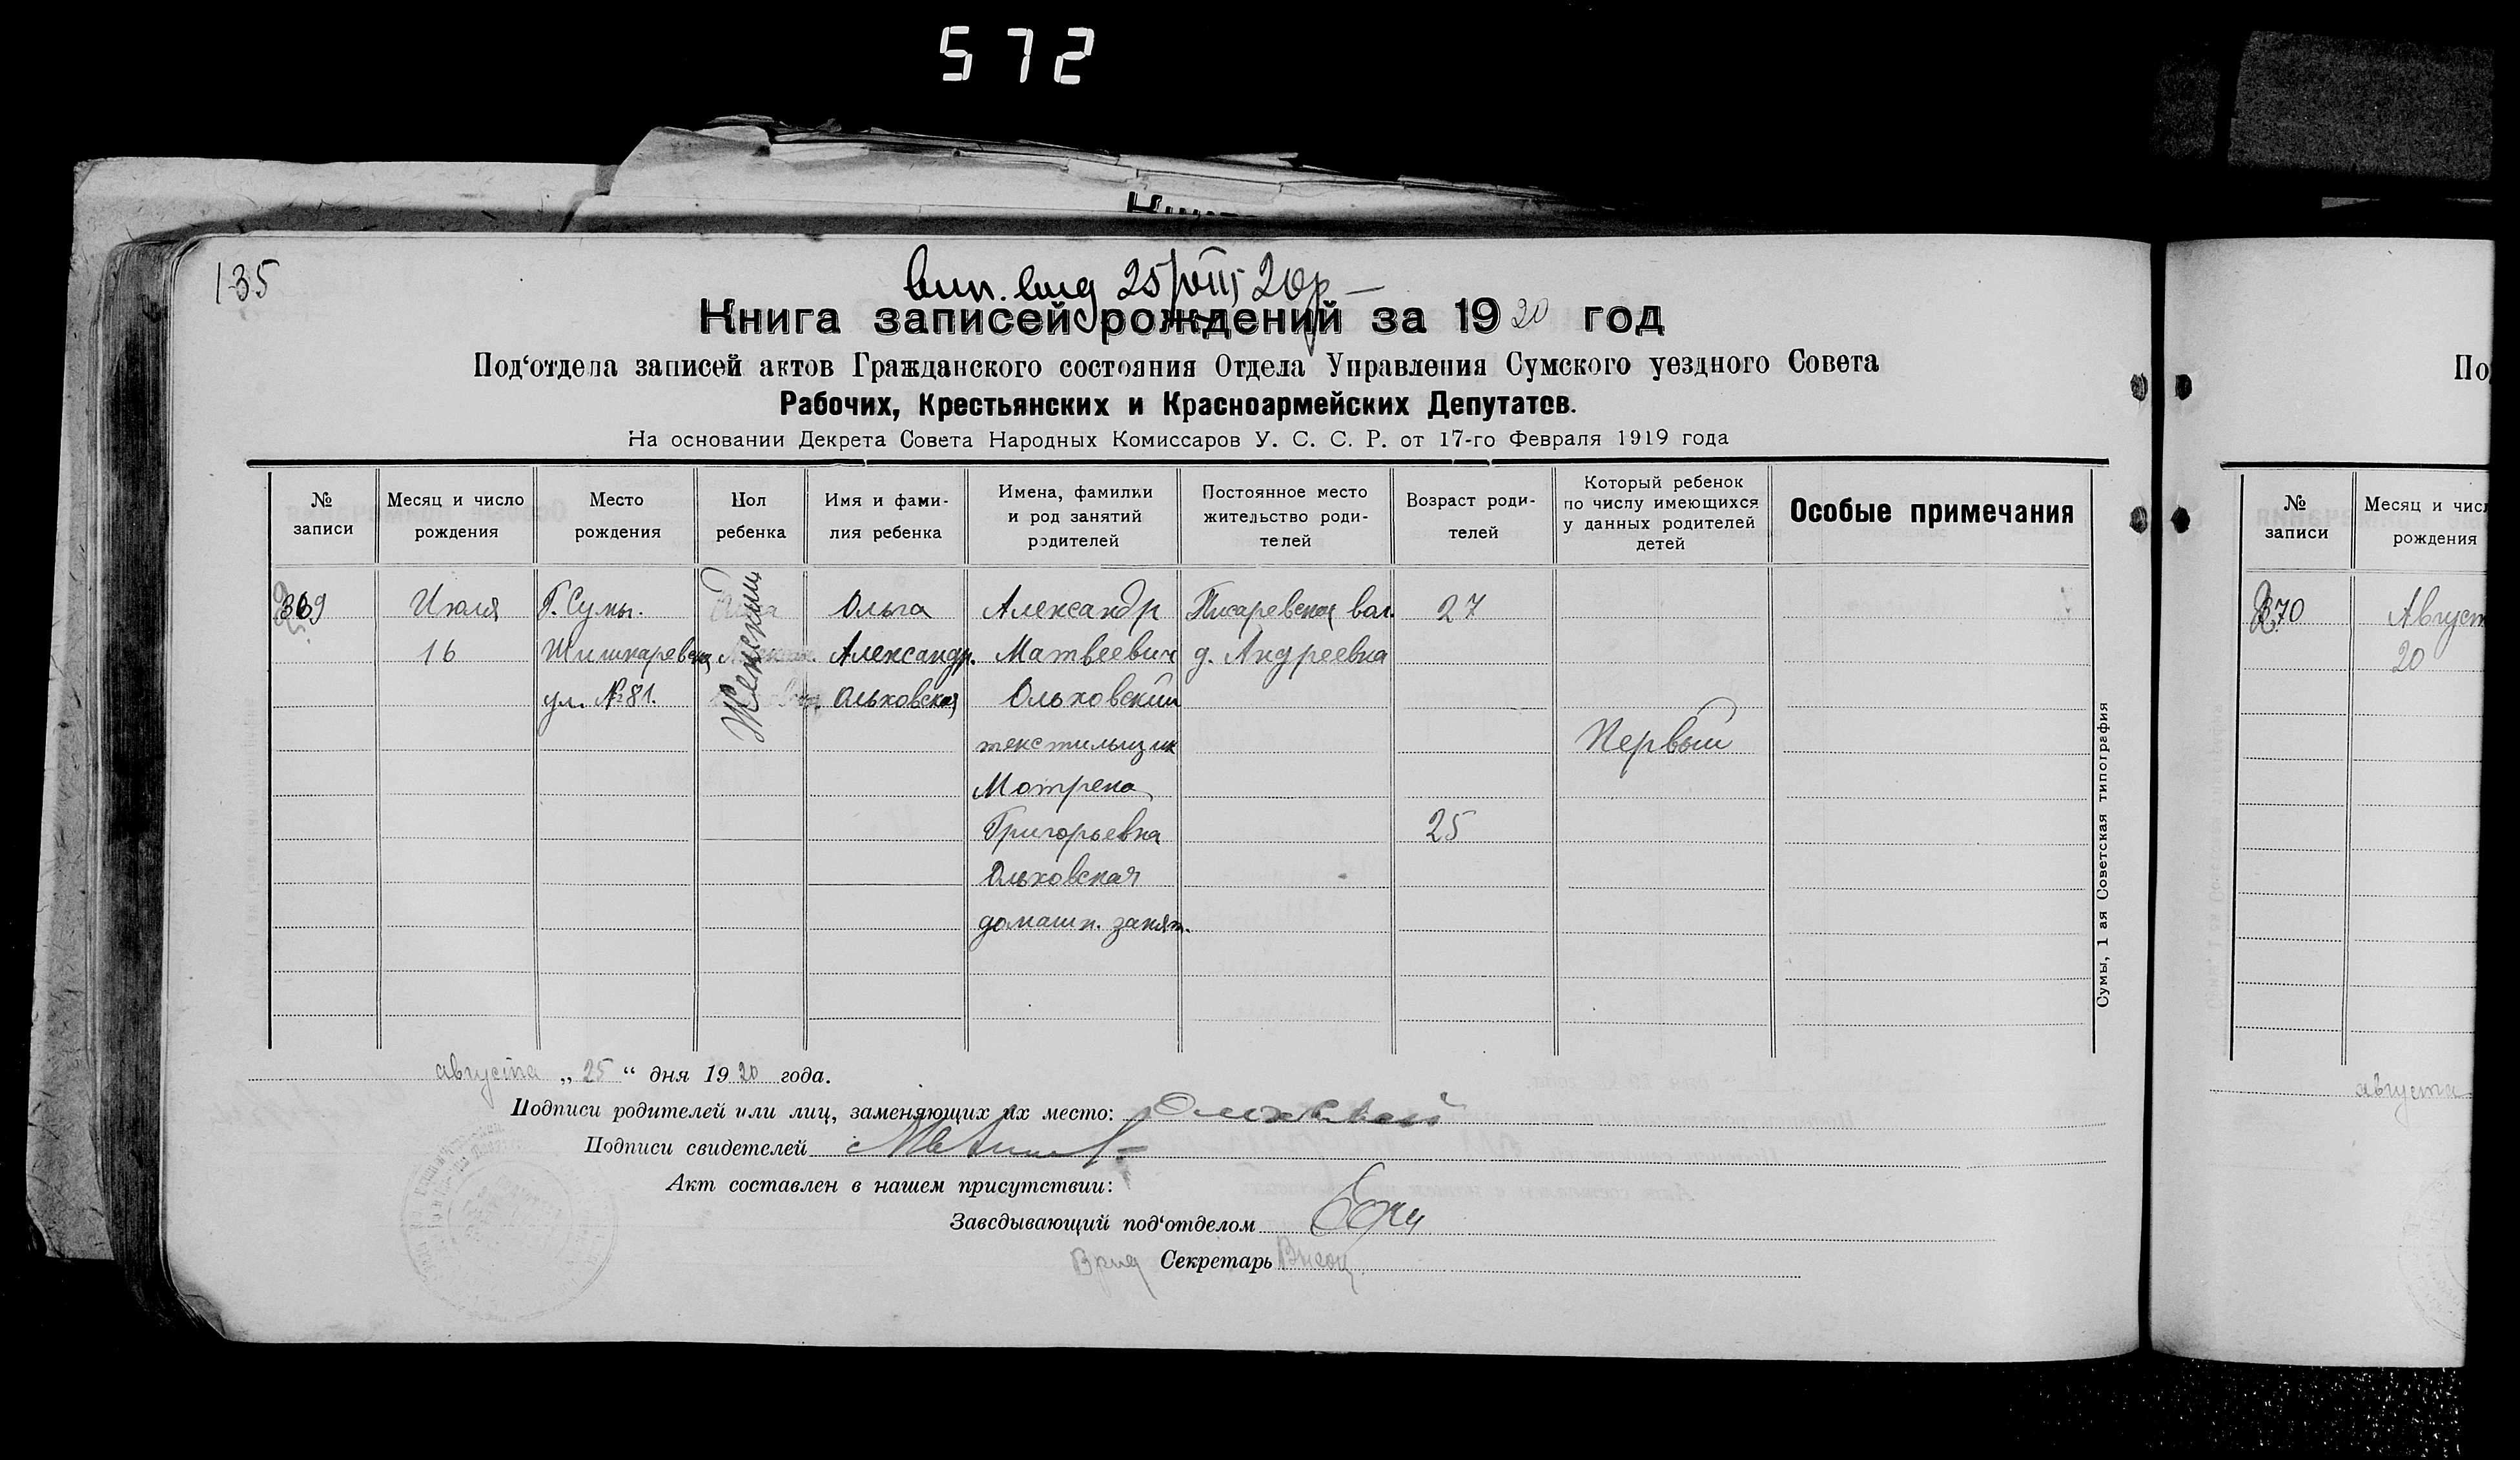 572
135
вип. вид 25/VIII 20р
Книга записей рождений за 1920 год
Под‘отдела записей актов Гражданского состояния Отдела Управления Сумского уездного Совета
Рабочих, Крестьянских и Красноармейских Депутатов.
На основании Декрета Совета Народных Комиссаров У. С. С. Р. от 17-го Февраля 1919 года
№ записи
Месяц и число рождения
Место рождения
Пол ребенка
Имя и фамилия ребенка
Имена, фамилки и род занятий родителей
Постоянное место жительство родителей
Возраст родителей
Который ребенок по числу имеющихся у данных родителей детей
Особые примечания
369
Июля
16
Г. Сумы.
Шишкаревская
ул. №81.
Женский
Ольга
Александр.
Ольховская
Александр
Матвеевич
Ольховский
текстильщик
Мотрена
Григорьевна
Ольховская
домашн. занят.
Писаревская вол.
д. Андреевка
27
25
Первый
Сумы, 1 ая Советская типография
августа „25“ дня 1920 года.
Подписи родителей или лиц, заменяющих их место: Ольховский
Подписи свидетелей
Акт составлен в нашем присутствии:
Заведывающий под‘отделом
Врид Секретарь
По
№ записи
Месяц и числ
рождения
370
Август
20
августа